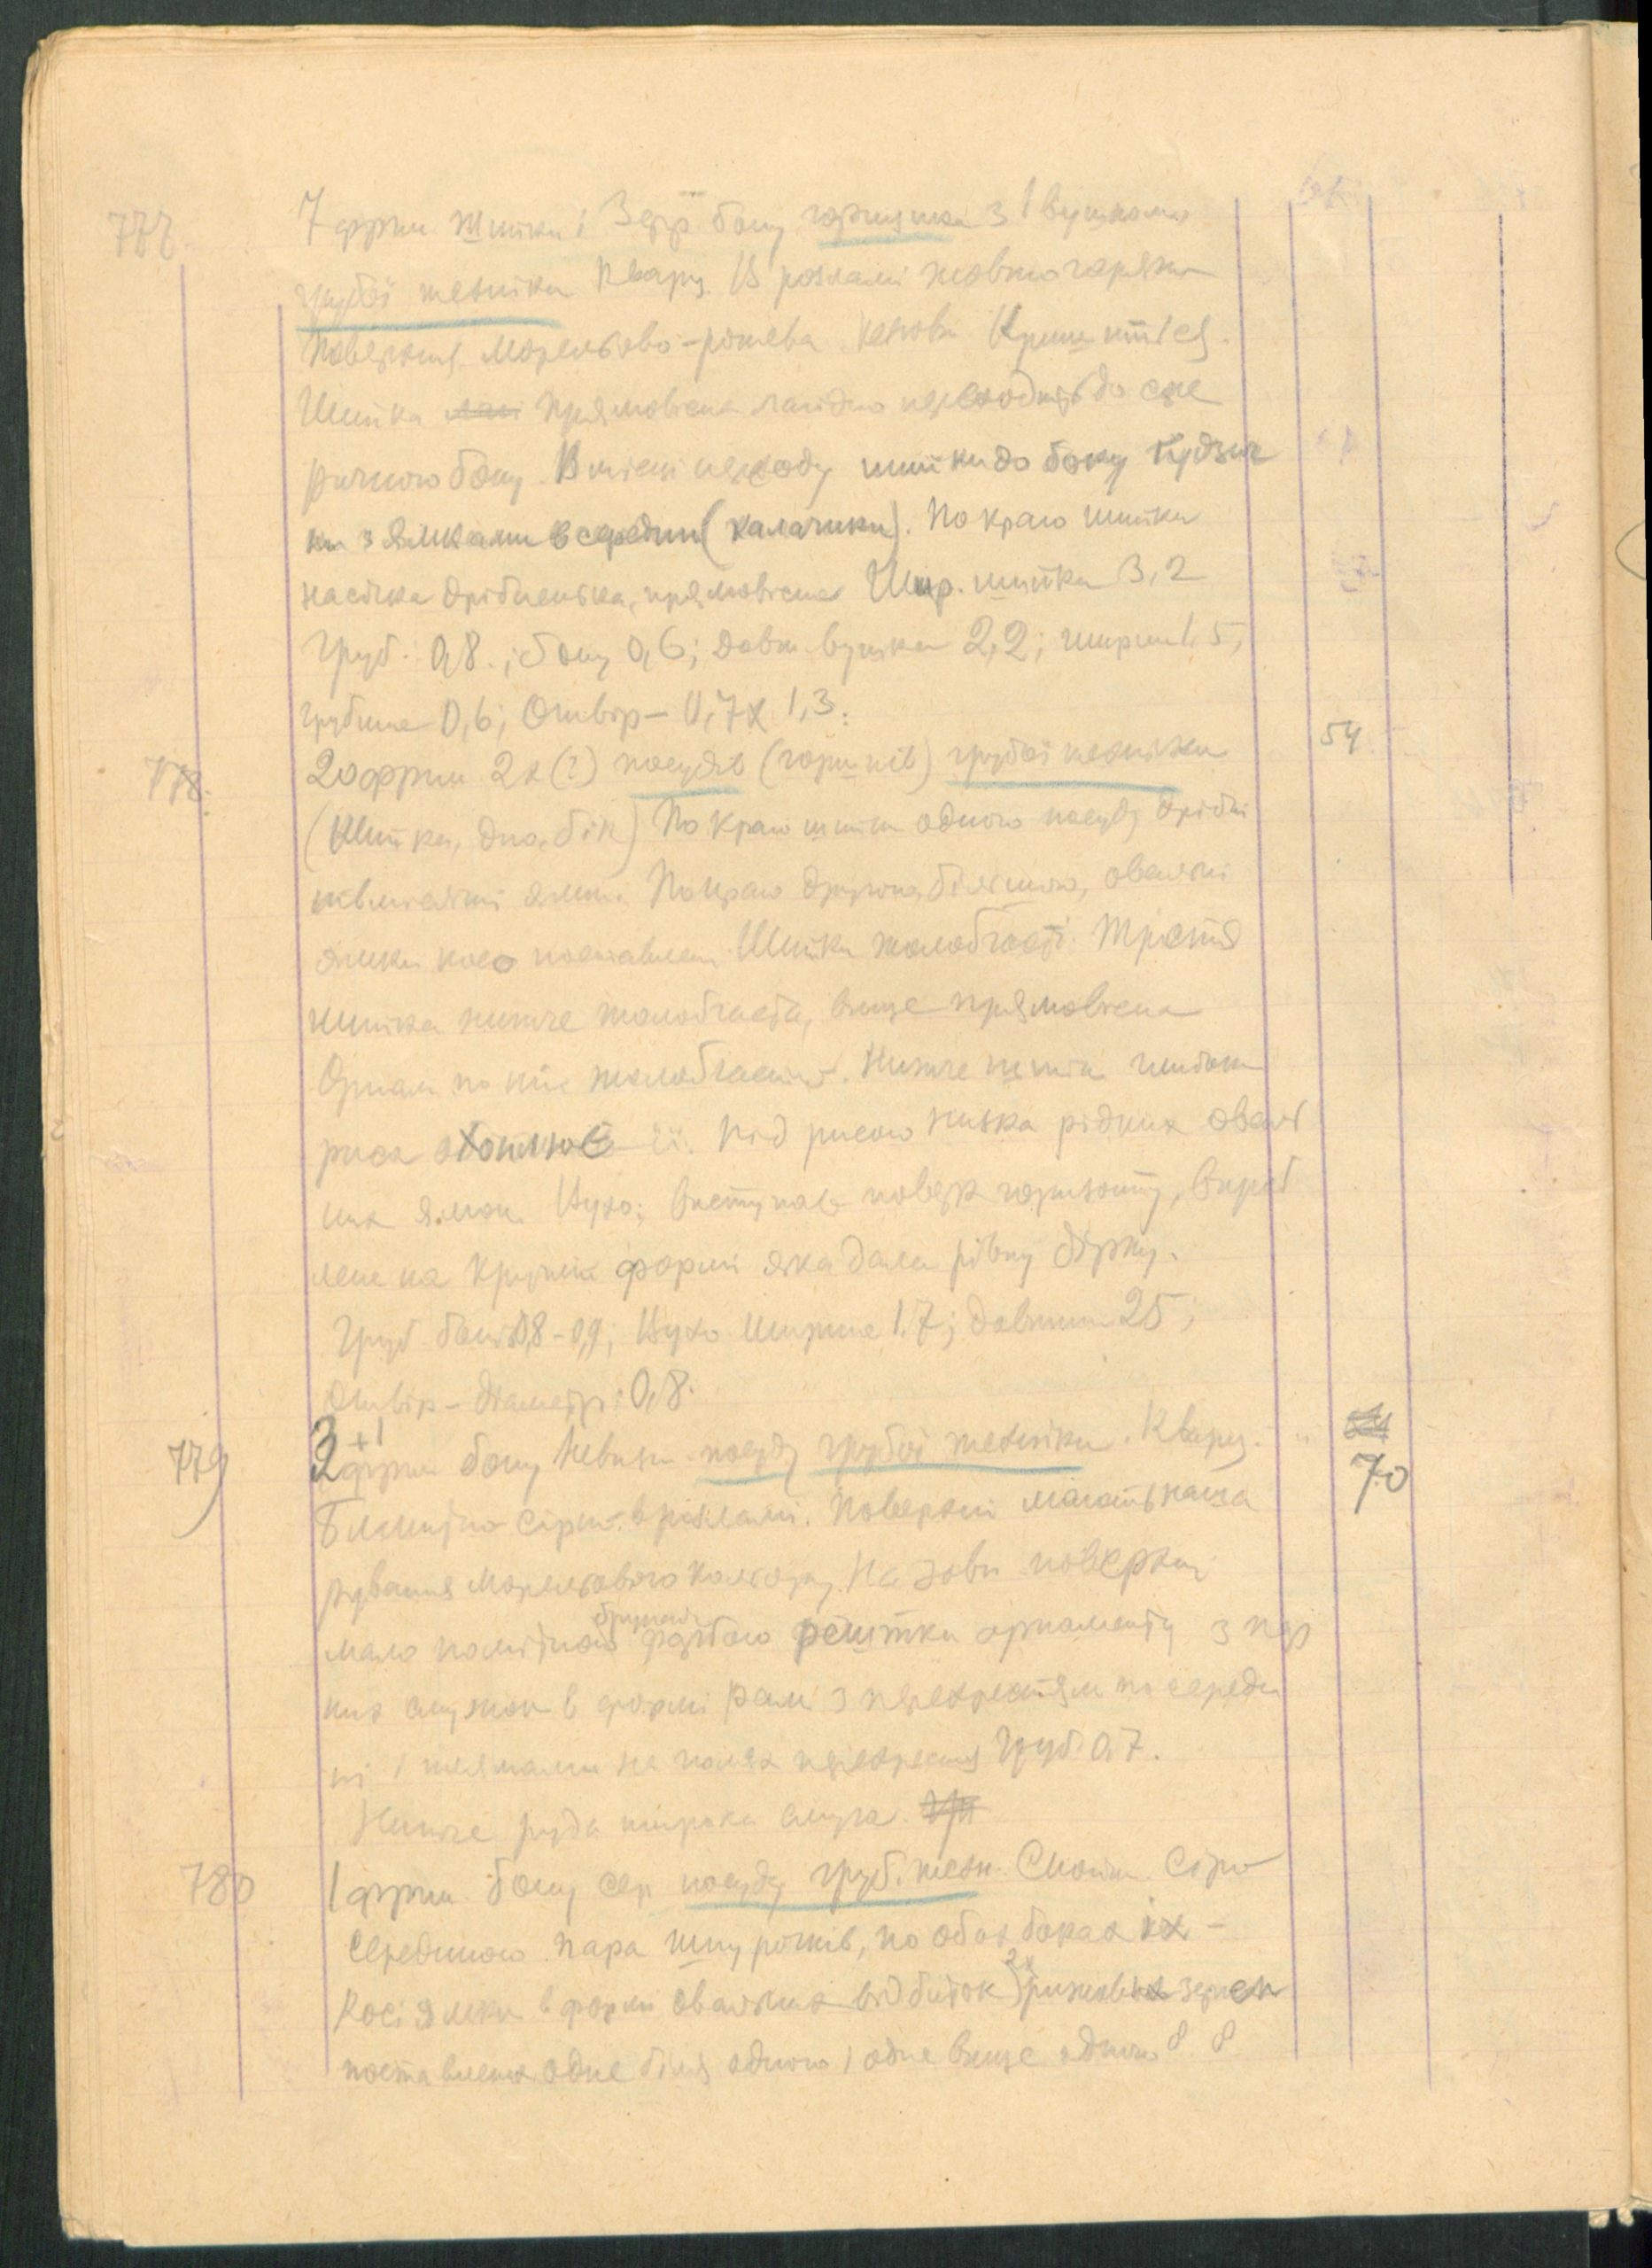 777
7 фргм. шийки і 3 фр. боку горщика з 1 вушком
грубої техніки Кварц. В розламі жовтогаряча
Поверхня морельово-рожева Кришиться.
Шийка прямовісна лагідно переходить до сфе
ричного боку. В місці переходу шийки до боку ґудзич
ки з ямками всередині (калачики). По краю шийки
насічка дрібненька, прямовісна Шир. шийки 3,2
Груб. 0,8.; боку 0,6; довж. вушка 2,2; ширин 1.5,
грубина 0,6; Отвір – 0,7 х 1,3.
778. 20 фргм 2х (?) посудів (горшків) грубої техніки 54
(Шийка, дно, бік) По краю шийки одного посуду дрібні
ямки. По краю другого, більшого, овальні
ямки косо поставлені Шийки жолобчасті. Третя
шийка нижче жолобчаста, вище прямовісна
Орнам по ній жолобчастий. Нижче шийки глибока
риса охоплює її. Під рисою низка рідких оваль
них ямок. Вухо; виступає поверх горизонту, вироб
лене на круглій формі яка дала рівну дірку.
Груб боків 0,8 – 0,9; Вухо ширина 1.7; довжина 25;
Отвір – діаметр: 0,8.
779 3 +1 фрагм боку посуду грубої техніки. Кварц. 70
Блакитно сірий в розламі. Поверхні мають наша
рування морельового кольору. На зовн поверхні
мало помітною брунатн фарбою рештки орнаменту з
них смужок в формі рами з перехрестям по середи
ні і плямами на полях перехрестя Груб. 0,7.
Нижче руда широка смуга.
780 1 фрагм. боку сер посуду груб. техн. Сіро
Серединою пара шнурочків, по обох боках їх –
Косі ямки в формі овальних відбиток 2х зерен
поставлених одне біля одного і одне вище одного 8 8